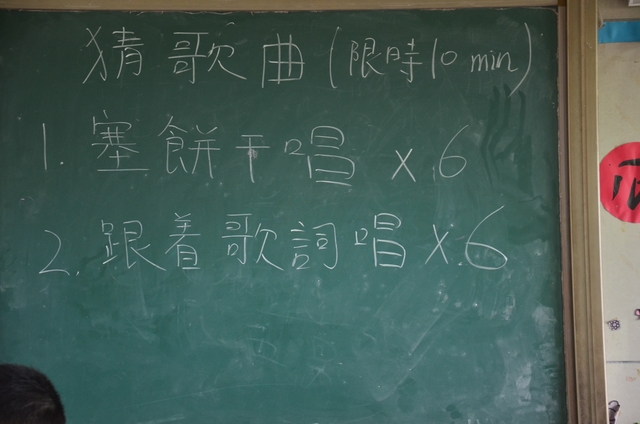 猜歌曲(限時10 min)
1. 塞餅干唱 x 6
2. 跟着歌詞唱 x 6